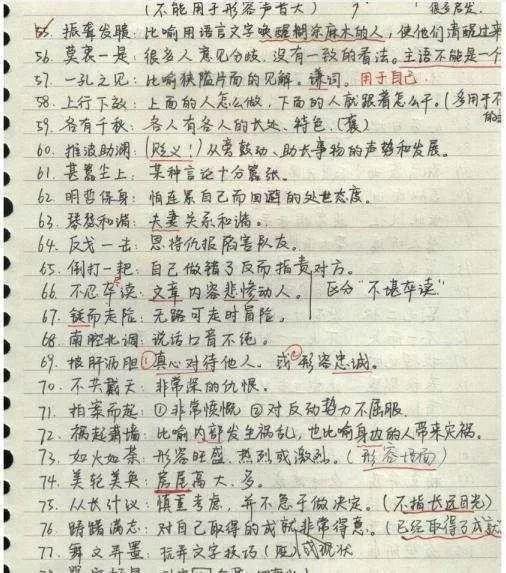 (不能用于形容声音大)
55. 振聋发聩: 比喻用语言文字唤醒糊涂麻木的人, 使他们清醒过来
56. 莫衷一是: 很多人意见分歧, 没有一致的看法。主语不能是一个
57. 一孔之见: 比喻狭隘片面的见解。谦词。用于自己.
58. 上行下效: 上面的人怎么做, 下面的人就跟着怎么干。(多用于不
59. 各有千秋: 各人有各人的长处、特色.(褒)
60. 推波助澜: (贬义!)从旁鼓动、助长事物的声势和发展。
61. 甚嚣尘上: 某种言论十分嚣张。
62. 明哲保身: 怕连累自己而回避的处世态度。
63. 琴瑟和谐: 夫妻关系和谐。
64. 反戈一击: 恩将仇报陷害队友。
65. 倒打一耙: 自己做错了反而指责对方。
66. 不忍卒读: 文章内容悲惨动人。 区分"不堪卒读"
67. 铤而走险: 无路可走时冒险。
68. 南腔北调: 说话口音不纯。
69. 披肝沥胆 ①真心对待他人。或②形容忠诚。
70. 不共戴天: 非常深的仇恨。
71. 拍案而起: ①非常愤慨 ②对反动势力不屈服.
72. 祸起萧墙: 比喻内部发生祸乱, 也比喻身边的人带来灾祸。
73. 如火如荼: 形容旺盛、热烈或激烈。(形容场面)
74. 美轮美奂: 房屋高大、多。
75. 从长计议: 慎重考虑, 并不急于做决定。(不指长远目光)
76. 踌躇满志: 对自己取得的成就非常得意。(已经取得了成就
77. 舞文弄墨: 玩弄文字技巧(贬)